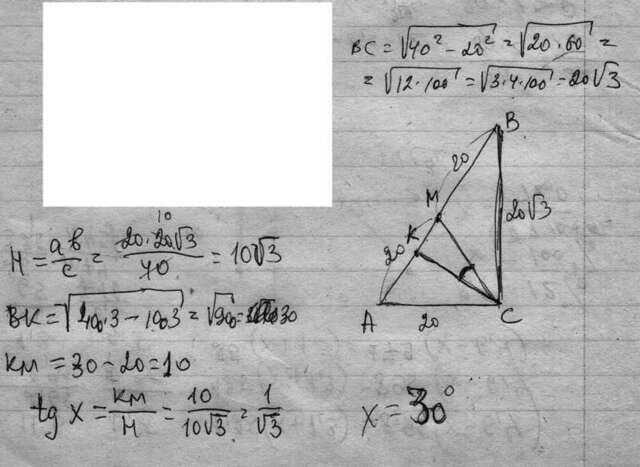 BC = √40² - 20² = √20·60 =
= √12·100 = √3·4·100 = 20√3
B
20
M
K
20
20√3
A
20
C
H = ab/c = 20·20√3/40 = 10√3
10
BK = √400·3 - 100·3 = √900 = 30
KM = 30 - 20 = 10
tg x = KM/H = 10/10√3 = 1/√3
x = 30°